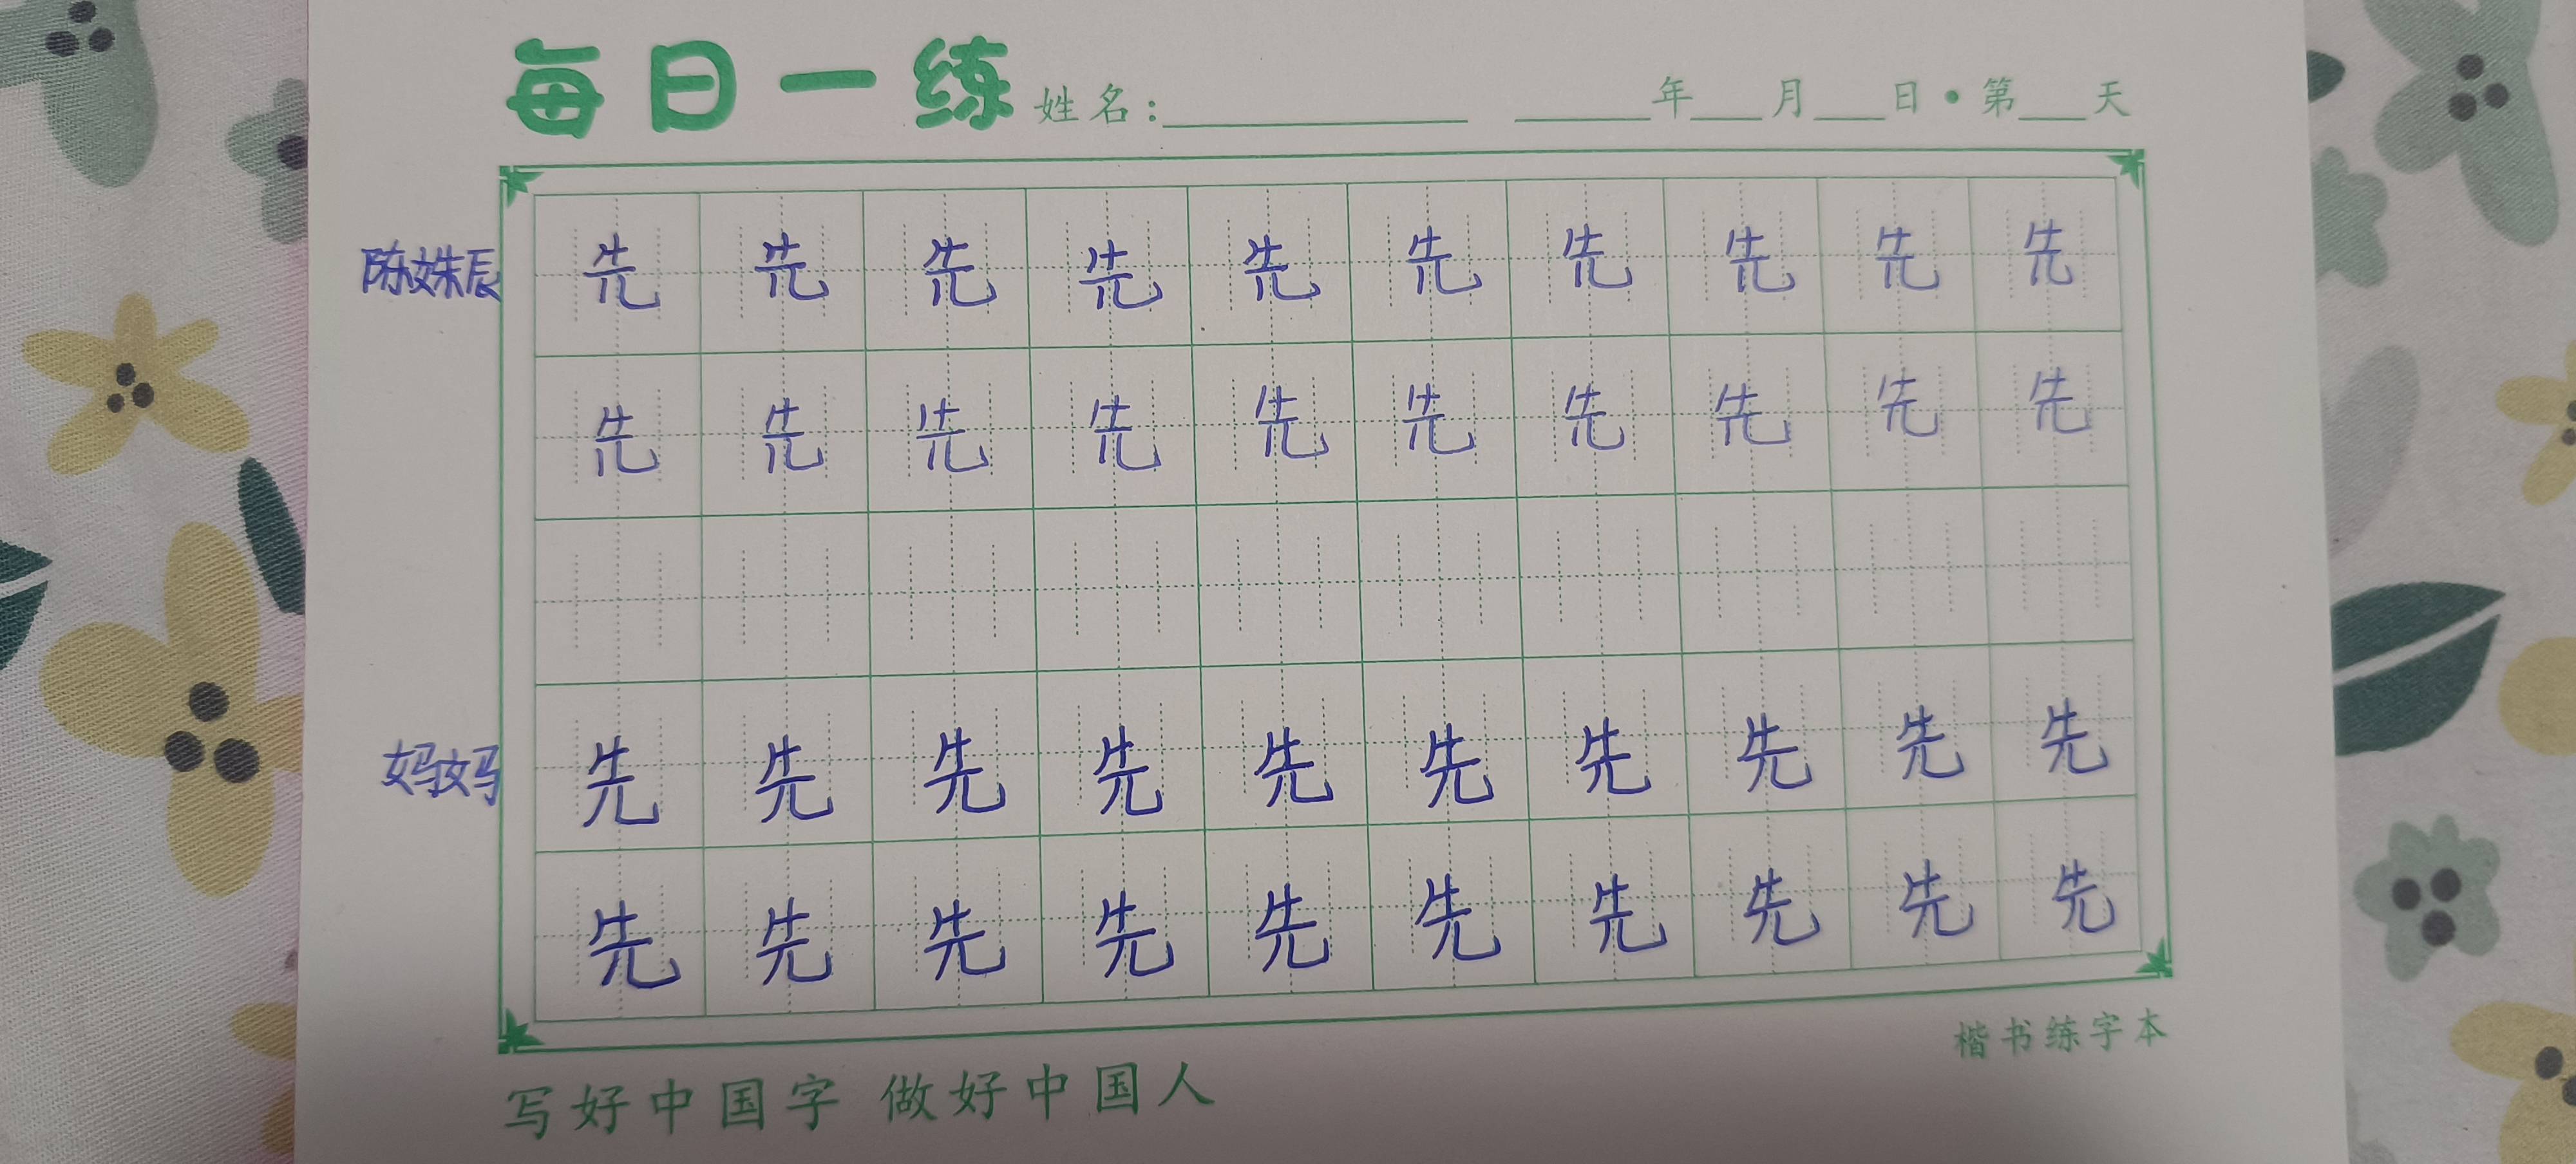 每日一练 姓名：________ ____年__月__日·第__天
陈姝辰 先 先 先 先 先 先 先 先 先 先
先 先 先 先 先 先 先 先 先 先
妈妈 先 先 先 先 先 先 先 先 先 先
先 先 先 先 先 先 先 先 先 先
楷书练字本
写好中国字 做好中国人